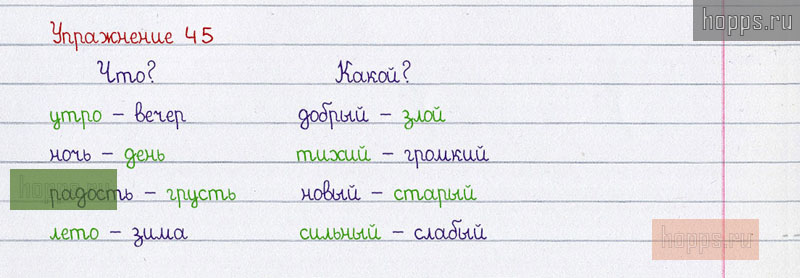 hopps.ru
Упражнение 45
Что? Какой?
утро – вечер добрый – злой
ночь – день тихий – громкий
радость – грусть новый – старый
лето – зима сильный – слабый
hopps.ru